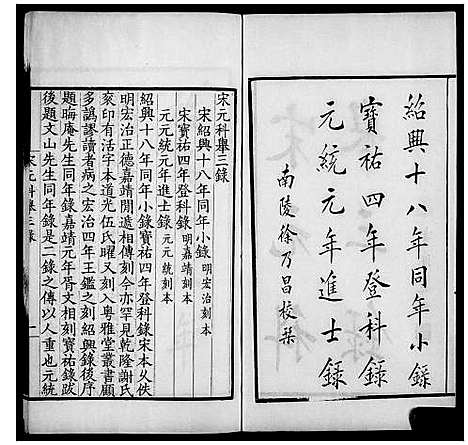 紹興十八年同年小錄
寶祐四年登科錄
元統元年進士錄
南陵徐乃昌校栞
宋元科舉三錄
宋紹興十八年同年小錄 明宏治刻本
宋寶祐四年登科錄 明嘉靖刻本
元元統元年進士錄 元元統刻本
紹興十八年同年小錄寶祐四年登科錄宋本乆佚
明宏治正德嘉靖閒遞相傳刻今亦罕見乾隆謝氏
褎印有活字本道光伍氏㬪又刻入粤雅堂叢書顧
多譌謬讀者病之宏治四年王鑑之刻紹興錄後序
題晦庵先生同年錄嘉靖元年胥文相刻寶祐錄跋
後題文山先生同年錄是二錄之傳以人重也元統
宋元科舉三錄
一